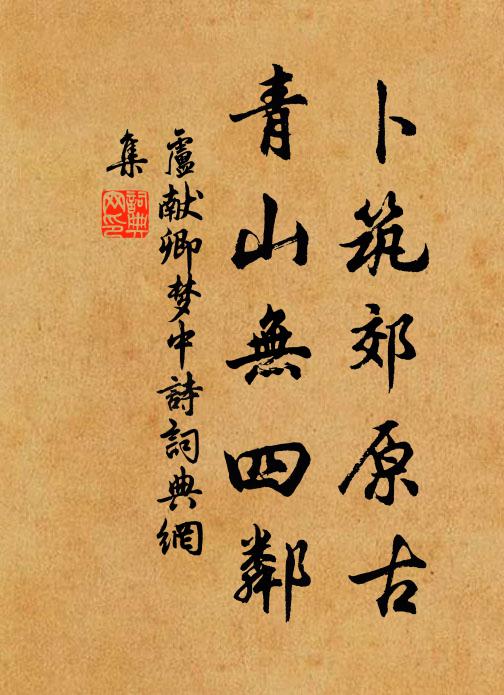 卜筑郊原古
青山無四鄰
盧献卿梦中詩詞典網
集
詞典
网印